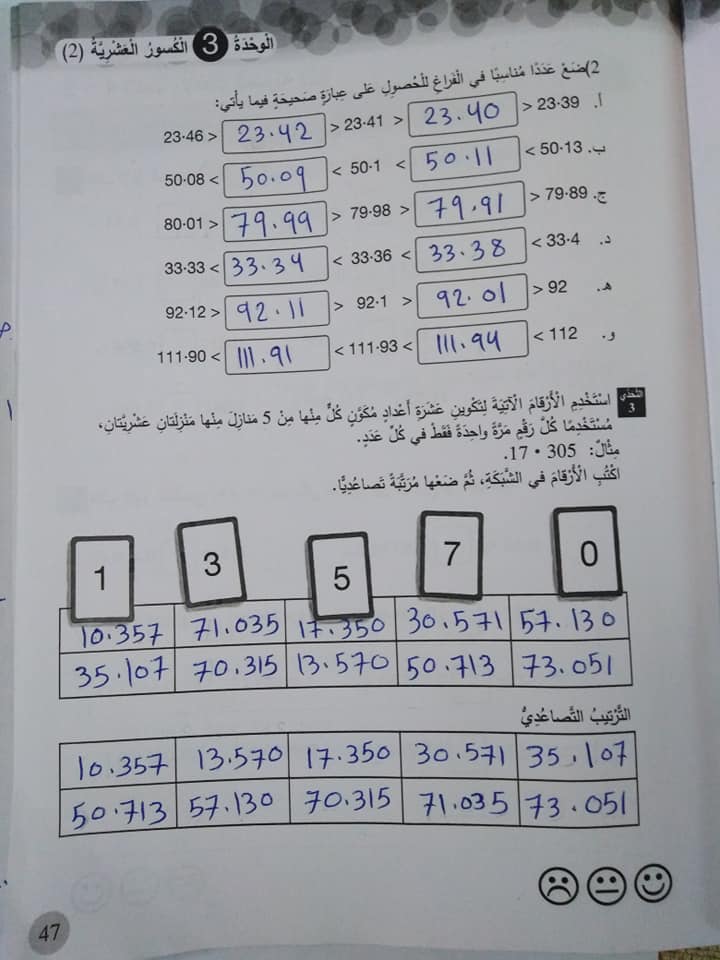 الْوِحْدَةُ 3 الْكُسورُ الْعَشْرِيَّةُ (2)
2)ضَعْ عَدَدًا مُناسِبًا في الْفَراغِ لِلْحُصولِ عَلى عِبارَةٍ صَحيحَةٍ فيما يَأْتي:
أ. 23·39 < 23.40 < 23·41 < 23.42 < 23·46
ب. 50·13 > 50.11 > 50·1 > 50.09 > 50·08
ج. 79·89 < 79.91 < 79·98 < 79.99 < 80·01
د. 33·4 > 33.38 > 33·36 > 33.34 > 33·33
هـ. 92 < 92.01 < 92·1 < 92.11 < 92·12
و. 112 > 111.94 > 111·93 > 111.91 > 111·90
التَّحَدّي 3
اسْتَخْدِمِ الْأَرْقامَ الْآتِيَةَ لِتَكْوينِ عَشَرَةِ أَعْدادٍ مُكَوَّنٍ كُلٌّ مِنْها مِنْ 5 مَنازِلَ مِنْها مَنْزِلَتانِ عَشْرِيَّتانِ،
مُسْتَخْدِمًا كُلَّ رَقْمٍ مَرَّةً واحِدَةً فَقَطْ في كُلِّ عَدَدٍ.
مِثالٌ: 305 • 17.
اكْتُبِ الْأَرْقامَ في الشَّبَكَةِ، ثُمَّ ضَعْها مُرَتَّبَةً تَصاعُدِيًّا.
1 3 5 7 0
10.357 71.035 17.350 30.571 57.130
35.107 70.315 13.570 50.713 73.051
التَّرْتيبُ التَّصاعُدِيُّ
10.357 13.570 17.350 30.571 35.107
50.713 57.130 70.315 71.035 73.051
47